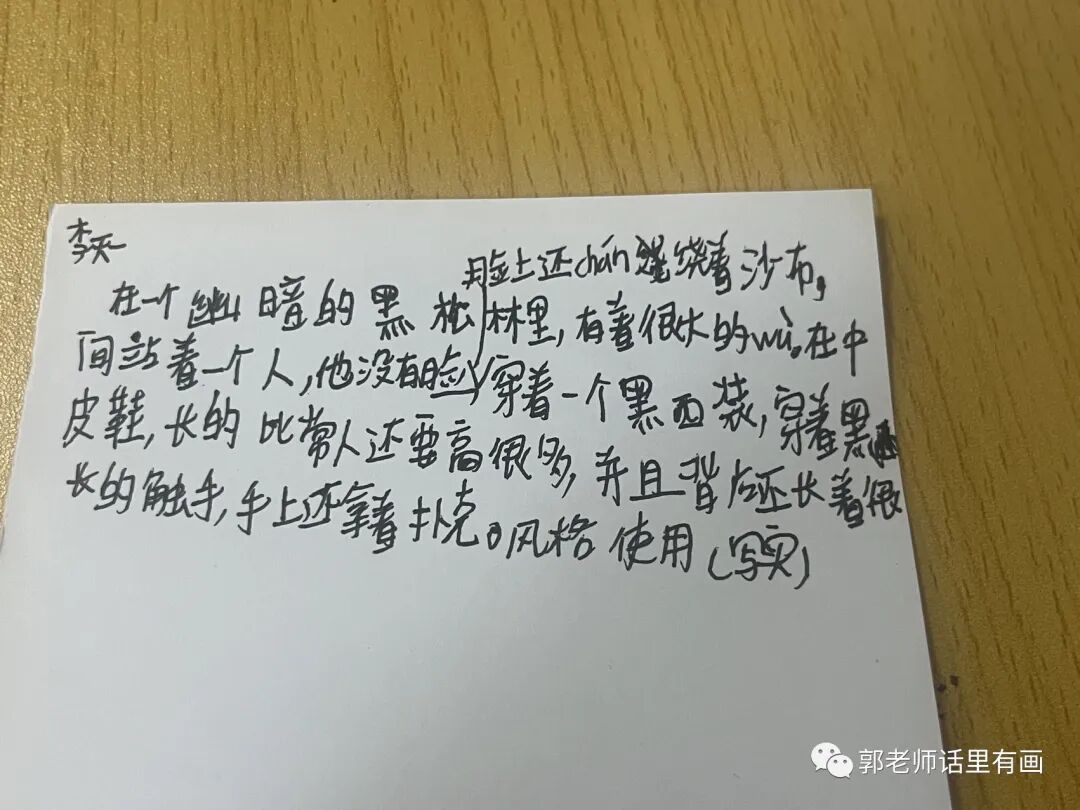 李天
脸上还chán绕着沙布,
在一个幽暗的黑松林里,有着很大的wù。在中
间站着一个人,他没有脸,穿着一个黑西装,穿着黑
皮鞋,长的比常人还要高很多,并且背后还长着很
长的触手,手上还拿着扑克。风格使用(写实)
郭老师话里有画